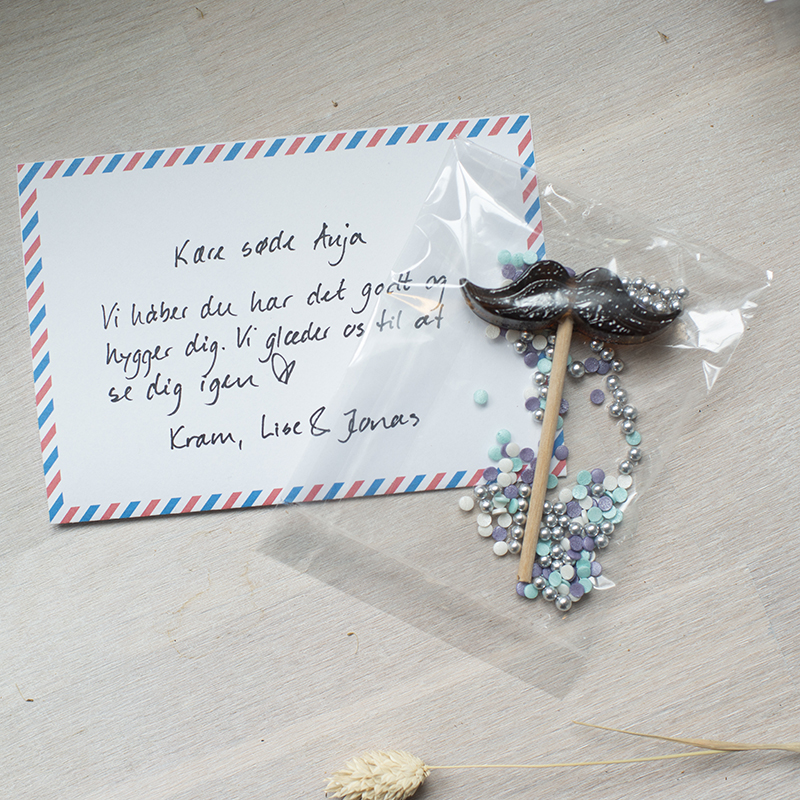 Kære søde Anja
Vi håber du har det godt og
hygger dig. Vi glæder os til at
se dig igen ♡
Kram, Lise & Jonas